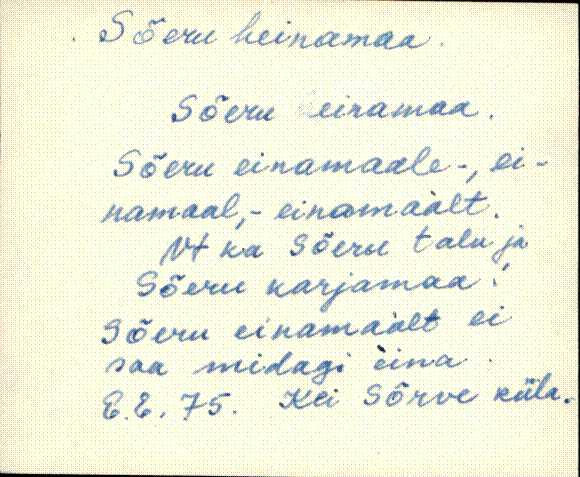 Sõeru heinamaa.
Sõeru einamaa.
Sõeru einamaale-, ei-
namaal,- einamaàlt.
Vt ka Sõeru talu ja
Sõeru karjamaa.
Sõeru einamaàlt ei
saa midagi èina.
E.E. 75. Kei Sõrve küla.